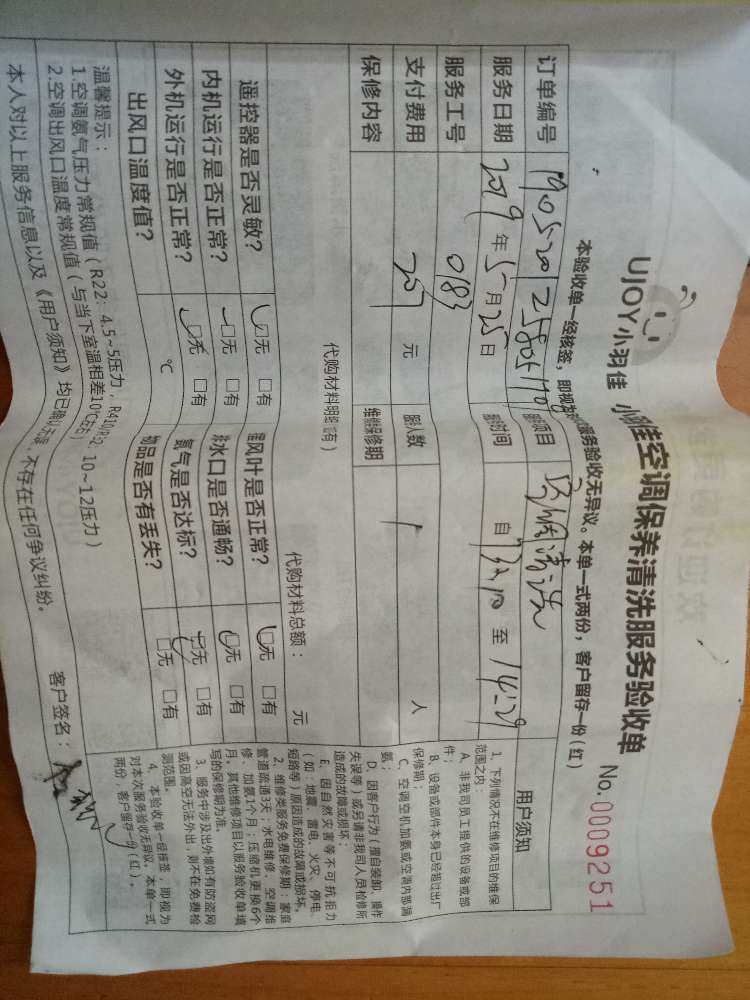 UJOY小羽佳
空调保养清洗服务验收单
No.0009251
本验收单一经核签，即视为对服务验收无异议。本单一式两份，客户留存一份(红)
订单编号
服务项目 空调清洗
服务日期 2019年5月25日
服务时间 自 至
服务工号 0183
服务人数 1 人
支付费用 207 元
维修保修期
保修内容
代购材料明细(有)
代购材料总额： 元
遥控器是否灵敏？ □无 □有
风叶是否正常？ □无 □有
内机运行是否正常？ □无 □有
水口是否通畅？ □无 □有
外机运行是否正常？ □无 □有
氨气是否达标？ □无 □有
出风口温度值？ ℃
物品是否有丢失？ □无 □有
温馨提示：
1.空调氨气压力常规值（R22：4.5~5压力，R410 10~12压力）
2.空调出风口温度常规值（与当下室温相差10℃左右）
本人对以上服务信息以及《用户须知》均已确认无误，不存在任何争议纠纷。
客户签名：
用户须知
1、下列情况不在维修项目的维保
范围之内：
A、非我司员工提供的设备或部
件；
B、设备或部件本身已经超过出厂
保修期；
C、空调空机加氨或空调内部漏
氨；
D、因客户行为（擅自装卸、操作
失误等）或另请非我司人员检修所
造成的故障或损坏；
E、因自然灾害等不可抗拒力
（如：地震、雷电、火灾、停电、
短路等）原因造成的故障或损坏。
2、维修类服务免费保修期：家庭
管道疏通3天，水电维修、空调维
修、加氨1个月；压缩机更换6个
月，其他维修项目以服务验收单填
写的保修期为准。
3、服务中涉及出外墙如有防盗网
或因高空无法外出，则不在免费检
测范围。
4、本验收单一经核签，即视为
对本次服务验收无异议，本单一式
两份，客户留存一份（红）。